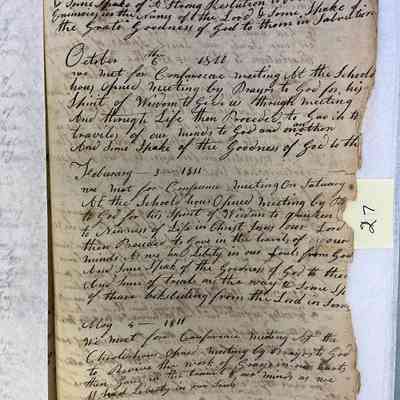 & Some Spake of A Strong Resolution to
in the Name of the Lord & Some Spake of
the Grate Goodness of God to them in Salvation
October the 6 1811
we met for Conference meeting At the School
hous opned Meeting by Prayer to God for his
Spirit of Wisdom to Give us through meeting
And through Life then Proceded to Gave in the
travels of our minds to God and on another
And Some Spake of the Goodness of God to the
February 3 1811
we met for Conference Meeting On Satuary
At the School hous Opned Meeting by
to God for his Spirit of Wisdom to quicken
to Newness of Life in Christ Jesus our Lord
then Proceded to Gave in the travels of our
minds At we had Liberty in our Souls from God
And Some Speak of the Goodness of God to them
And Some of trials on the way to Some Sp
of thare backsliding from the Lord in Some
May 4 1811
We meet for Conference Meeting At the
School hous Opned Meeting by Prayer to God
to Revive the work of Grace in our harts
then Gave in the travel of our minds as we
had Leberty in our Souls
27